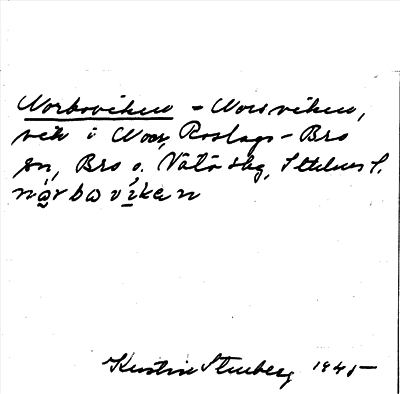 Norboviken = Norsviken,
vik i Norr, Roslags-Bro
sn, Bro o. Vätö skg, Sthlms l.
nårboviken
Kerstin Stenberg 1945